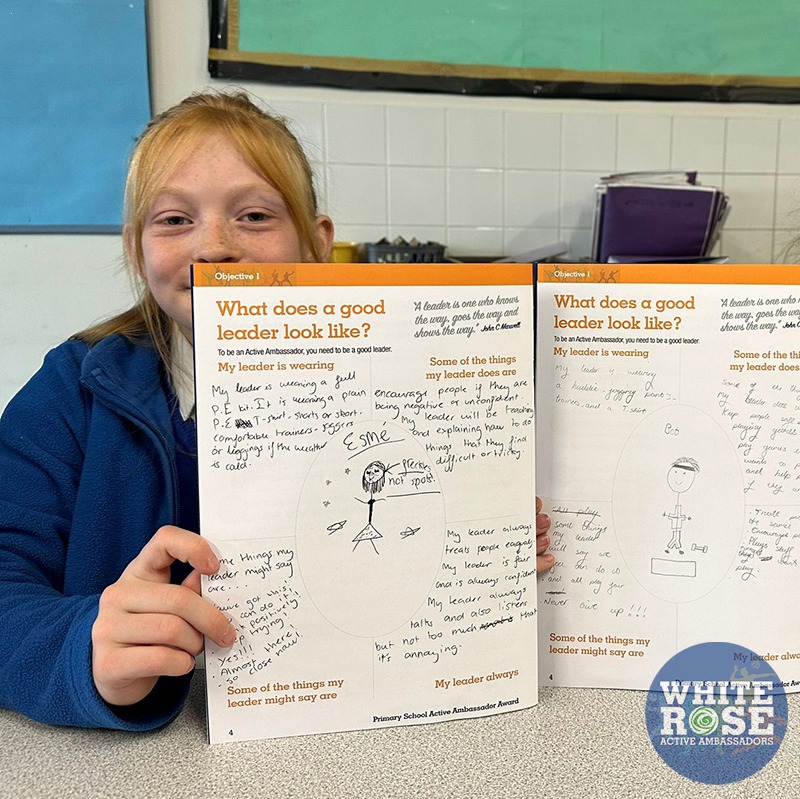 Objective 1
What does a good
leader look like?
"A leader is one who knows
the way, goes the way and
shows the way." John C Maxwell
To be an Active Ambassador, you need to be a good leader.
My leader is wearing
Some of the things
my leader does are
My leader is wearing a full
P.E kit. It is wearing a plain
P.E T-shirt- shorts or short.
comfortable trainers-
or leggings if the weather
is cold.
encourage people if they are
being negative or unconfident.
My leader will be teaching
and explaining how to do
things that they find
difficult or tricky.
Esmé
not spots.
me things my
leader might say
are...
can do it!
positively!
trying!
Yes!!!
Almost there!
so close now!
My leader always
treats people equally.
My leader is fair
and is always confident
My leader always
talks and also listens
but not too much that
it's annoying.
Some of the things my
leader might say are
My leader always
Primary School Active Ambassador Award
4
Objective 1
What does a good
leader look like?
"A leader is one who kno
the way, goes the way a
shows the way." John C
To be an Active Ambassador, you need to be a good leader.
My leader is wearing
Some of th
my leader do
My leader is wearing
a hoddie- jogging pants-
trainers- and a T-shirt
Keep people safe
and help
Boo
some things
my leader
will say
and all play fair
Never give up!!!
Encourages
play.
Some of the things my
leader might say are
My leader alwa
4
WHITE
ROSE
ACTIVE AMBASSADORS